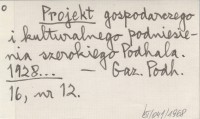 Projekt gospodarczego
i kulturalnego podniesie-
nia szerokiego Podhala.
1928... — Gaz. Podh.
16, nr 12.